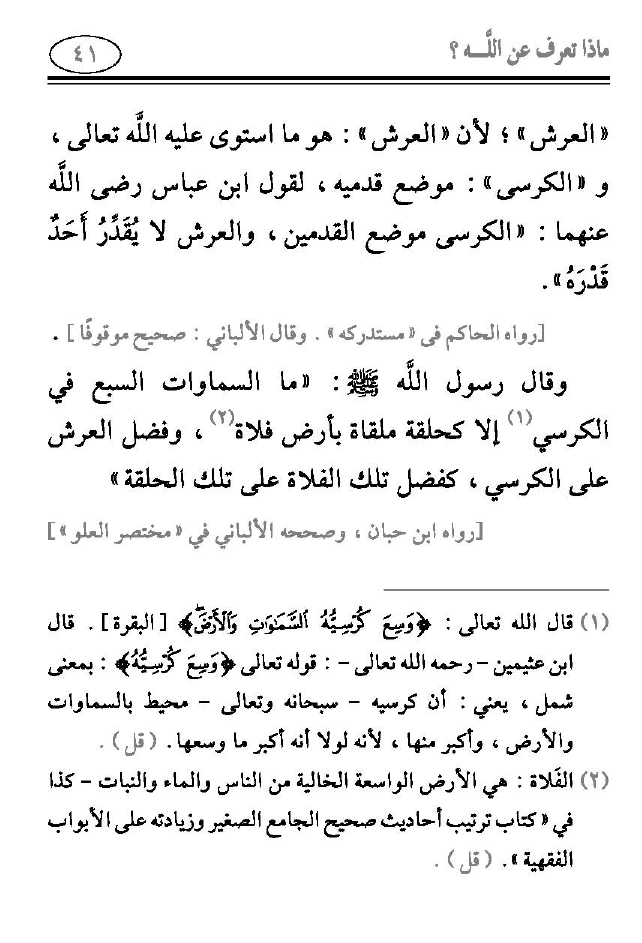 ماذا تعرف عن اللَّـــه ؟
٤١
«العرش» ؛ لأن «العرش» : هو ما استوى عليه اللَّه تعالى ،
و «الكرسى» : موضع قدميه ، لقول ابن عباس رضى اللَّه
عنهما : «الكرسى موضع القدمين ، والعرش لا يُقَدِّرُ أَحَدٌ
قَدْرَهُ» .
[رواه الحاكم فى «مستدركه» . وقال الألباني : صحيح موقوفًا] .
وقال رسول اللَّه ﷺ : «ما السماوات السبع في
الكرسي(١) إلا كحلقة ملقاة بأرض فلاة(٢) ، وفضل العرش
على الكرسي ، كفضل تلك الفلاة على تلك الحلقة»
[رواه ابن حبان ، وصححه الألباني في «مختصر العلو»]
(١) قال الله تعالى : ﴿وَسِعَ كُرْسِيُّهُ السَّمَٰوَٰتِ وَالْأَرْضَۖ﴾ [البقرة] . قال
ابن عثيمين –رحمه الله تعالى – : قوله تعالى ﴿وَسِعَ كُرْسِيُّهُ﴾ : بمعنى
شمل ، يعني : أن كرسيه – سبحانه وتعالى – محيط بالسماوات
والأرض ، وأكبر منها ، لأنه لولا أنه أكبر ما وسعها. (قل) .
(٢) الفَلاة : هي الأرض الواسعة الخالية من الناس والماء والنبات – كذا
في «كتاب ترتيب أحاديث صحيح الجامع الصغير وزيادته على الأبواب
الفقهية» . (قل) .